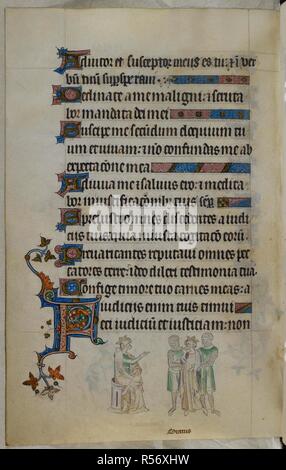 Adiutor et susceptor meus es tu: et in ver
bum tuum supersperaui
Declinate a me maligni: et scruta
bor mandata dei mei
Suscipe me secundum eloquium tu
um et uiuam: et non confundas me ab
expectatione mea
Adiuua me et saluus ero: et medita
bor in iustificationibus tuis semper
Spreuisti omnes discedentes a iudi
ciis tuis: quia iniusta cogitatio eorum
Preuaricantes reputaui omnes pec
catores terre: ideo dilexi testimonia tua
Confige timore tuo carnes meas: a
iudiciis enim tuis timui
Feci iudicium et iusticiam: non
alamy
B56XHW
www.alamy.com